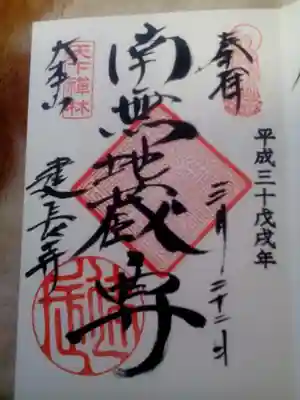 奉拝
平成三十戊戌年
三月二十二日
南無地蔵尊
天下禅林
大本山
建長寺